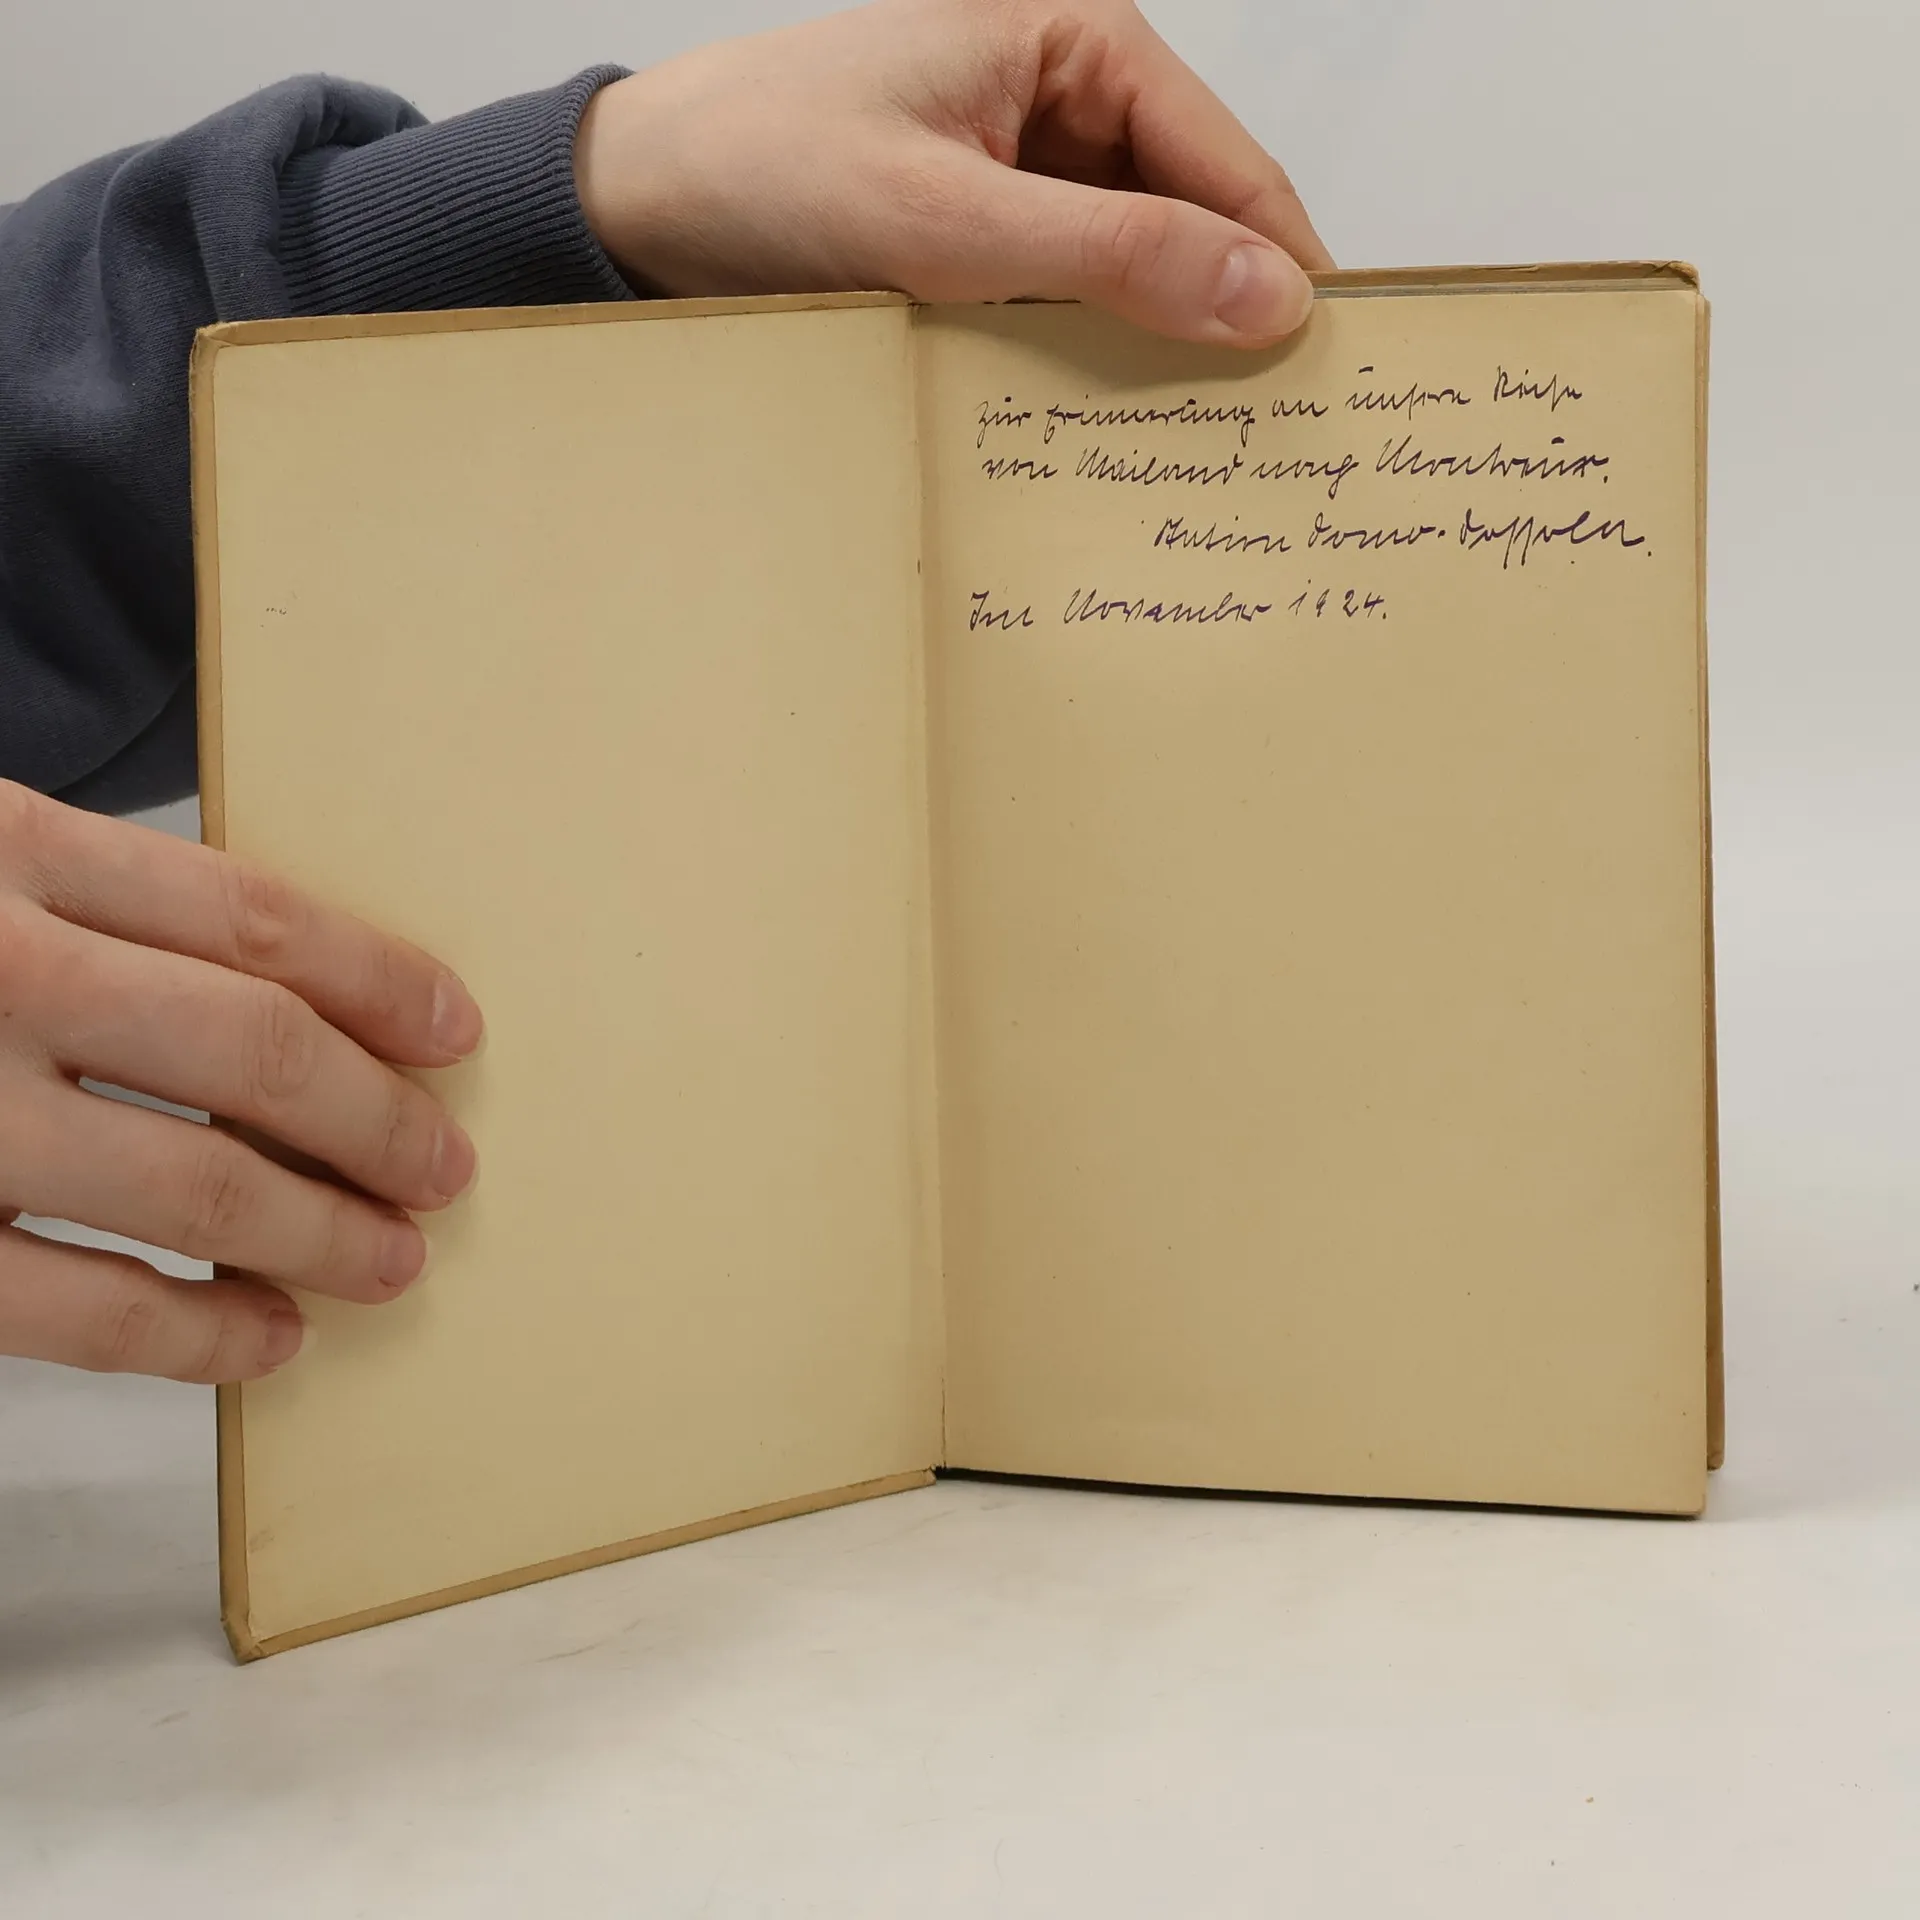 Zur Erinnerung an unsere Reise
von Mailand nach Montreux.
Station Domo-Dossola.
Im November 1924.